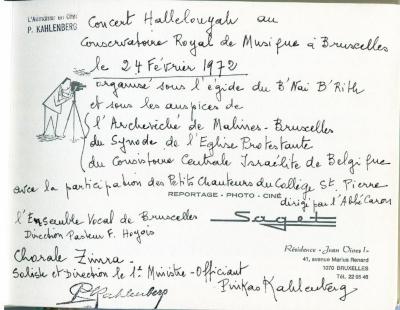 L'Animateur en Chef
P. KAHLENBERG
Concert Hallelouyah au
Conservatoire Royal de Musique à Bruxelles
le 24 Février 1972
organisé sous l'égide du B'Nai B'Rith
et sous les auspices de
l'Archevêché de Malines-Bruxelles
du Synode de l'Eglise Protestante
du Consistoire Centrale Israélite de Belgique
avec la participation des Petits Chanteurs du Collège St. Pierre
REPORTAGE - PHOTO - CINÉ
dirigé par l'Abbé Caron
l'Ensemble Vocal de Bruxelles
Sagot
Direction Pasteur F. Hoyois
Résidence "Jean Oines I"
Chorale Zimra
41, avenue Marius Renard
1070 BRUXELLES
Soliste et Direction le 1er Ministre-Officiant
Tél. 22 95 46
P. Kahlenberg
Pinkas Kahlenberg